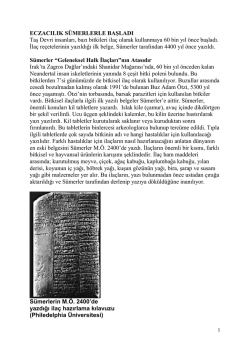 ECZACILIK SÜMERLERLE BAŞLADI
Taş Devri insanları, bazı bitkileri ilaç olarak kullanmaya 60 bin yıl önce başladı.
İlaç reçetelerinin yazıldığı ilk belge, Sümerler tarafından 4400 yıl önce yazıldı.
Sümerler “Geleneksel Halk İlaçları”nın Atasıdır
Irak’ta Zagros Dağlar’ındaki Shanidar Mağarası’nda, 60 bin yıl önceden kalan
Neandertal insan iskeletlerinin yanında 8 çeşit bitki poleni bulundu. Bu
bitkilerden 7’si günümüzde de ilaç olarak kullanılıyor. Buzullar arasında
cesedi bozulmadan kalmış olarak 1991’de bulunan Buz Adam Ötzi, 5300 yıl
önce yaşamıştı. Ötzi’nin torbasında parazitler için kullanılan bitkiler
vardı. Bitkisel ilaçlarla ilgili ilk yazılı belgeler Sümerler’e aittir. Sümerler,
önemli konuları kil tabletlere yazardı. Islak kil, önce çamur, avuç içinde dikdörtgen
bir biçim verilirdi. Ucu üçgen şeklindeki kalemler, bu kilin üzerine bastırılarak
yazı yazılırdı. Kil tabletler kurutularak saklanır veya kuruduktan sonra
fırınlanırdı. Bu tabletler yüzlerce arkeologlarca bulunup tercüme edildi. Tıpla
ilgili olanlarda, çok sayıda tıbbi bitkinin adı ve hangi hastalıklar için kullanılacağı
bulundu. Fakat, bu ilaçların hangi hastalıklar için nasıl hazırlanacağını anlatan dünyanın
en eski belgesini Sümerler M.Ö. 2400’de yazdı. İlaçların önemli bir kısmı, farklı
bitkisel ve hayvansal ürünlerin karışımı şeklindedir. İlaç ham maddeleri
arasında; kurutulmuş meyve, tohum, kök, kabuk, reçine, yengeç kabuğu,
derisi, koyunun iç yağı, böbrek yağı, kuşun gözünün yağı, bira, şarap ve susam
yağı gibi malzemeler yer alır. Bu ilaçların, yazı bulunmadan önce ustadan çırağa
aktarıldığı ve Sümerler tarafından derlenip yazıya döküldüğüne inanılıyor.
Sümerlerin M.Ö. 2400’de
yazdığı ilaç hazırlama kılavuzu
(Philedelphia Üniversitesi)
1